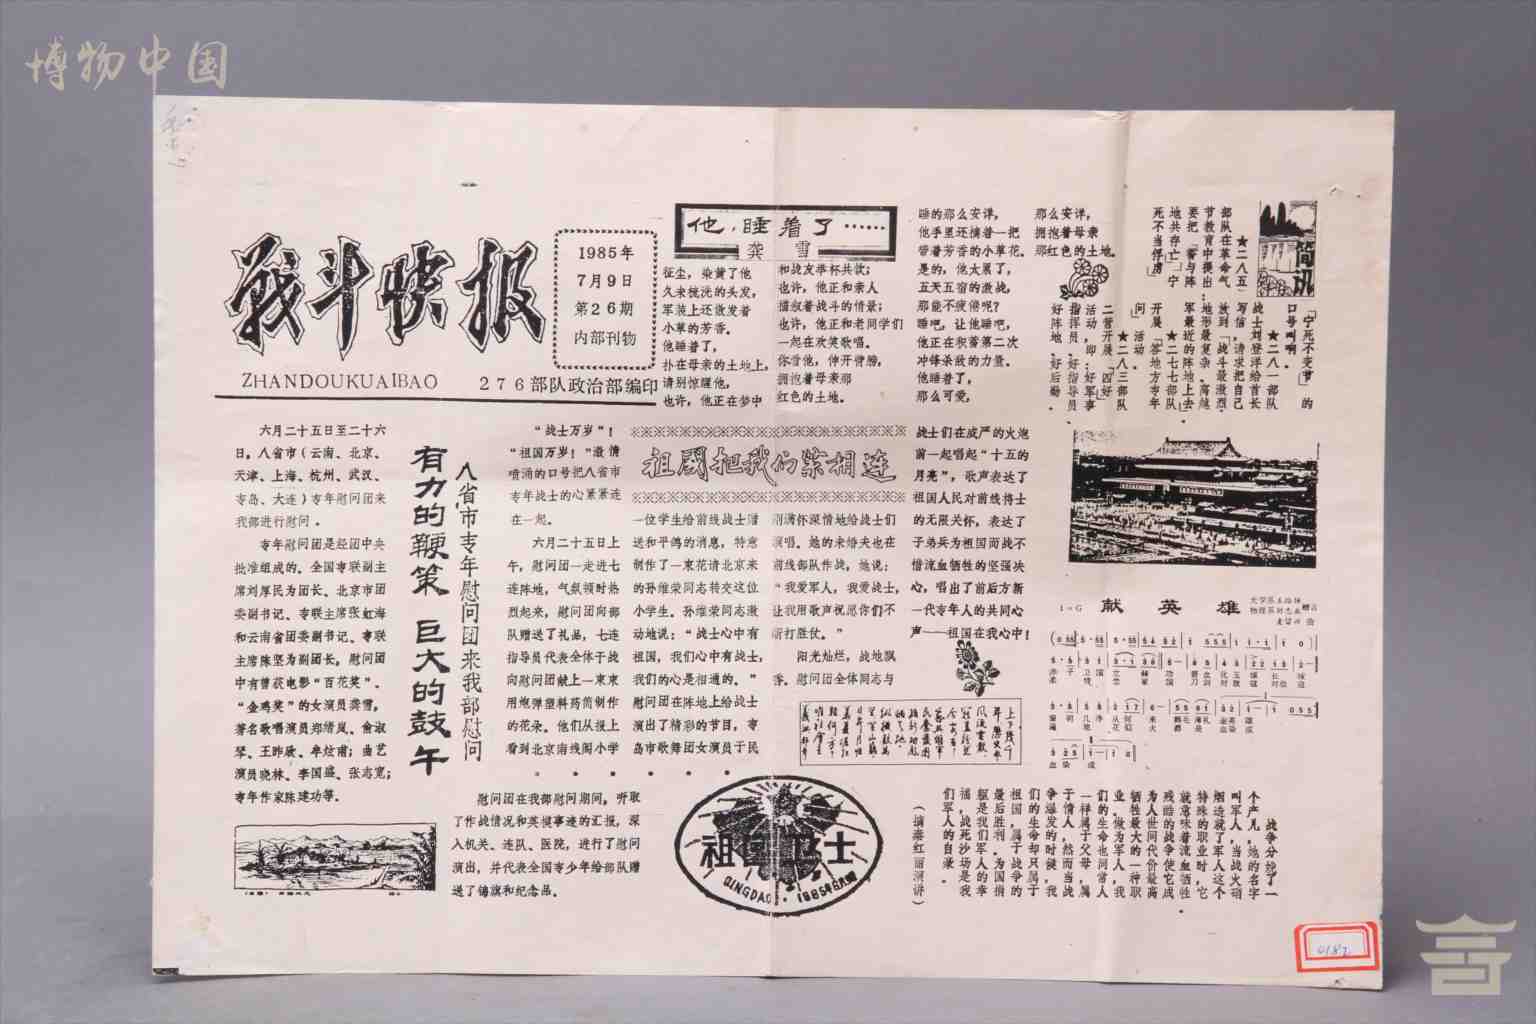 博物中国
战斗快报
ZHANDOUKUAIBAO
1985年
7月9日
第26期
内部刊物
276部队政治部编印
他,睡着了……
龚雪
征尘,染黄了他
久未梳洗的头发,
军装上还散发着
小草的芳香。
他睡着了,
扑在母亲的土地上,
请别惊醒他,
也许,他正在梦中
和战友举杯共饮;
也许,他正和亲人
描叙着战斗的情景;
也许,他正和老同学们
一起在欢笑歌唱。
你看他,伸开臂膀,
拥抱着母亲那
红色的土地。
睡的那么安详,
他手里还摘着一把
带着芳香的小草花。
是的,他太累了,
五天五宿的激战,
那能不疲倦呢?
睡吧,让他睡吧,
他正在积蓄第二次
冲锋杀敌的力量。
他睡着了,
那么可爱,
那么安详,
拥抱着母亲
那红色的土地。
简讯
★二八五
部队在革命气
节教育中提出:
要把「誓与阵
地共存亡」「宁
死不当俘虏」
「宁死不变节」的
口号叫响。
★二八一部队
战士刘登洋给首长
写信,请求把自己
放到「战斗最激烈
地形最复杂,离越
军最近的阵地上去
★二七七部队
开展「答地方青年
问」活动
★二八三部队
二营开展「四好」
活动,即:好军事
指挥员,好指导员
好阵地,好后勤。
有力的鞭策 巨大的鼓午
八省市青年慰问团来我部慰问
六月二十五日至二十六
日,八省市(云南、北京、
天津、上海、杭州、武汉、
青岛、大连)青年慰问团来
我部进行慰问。
青年慰问团是经团中央
批准组成的。全国青联副主
席刘厚民为团长、北京市团
委副书记、青联主席张虹海
和云南省团委副书记、青联
主席陈坚为副团长,慰问团
中有曾获电影“百花奖”、
“金鸡奖”的女演员龚雪,
著名歌唱演员郑绪岚、俞淑
琴、王昨砍、牟炫甫;曲艺
演员晓林、李国盛、张志宽;
青年作家陈建功等。
“战士万岁”!
“祖国万岁!”激情
喷涌的口号把八省市
青年战士的心紧紧连
在一起。
六月二十五日上
午,慰问团一走进七
连阵地,气氛顿时热
烈起来,慰问团向部
队赠送了礼品,七连
指导员代表全体干战
向慰问团献上一束束
用炮弹塑料药筒制作
的花朵。他们从报上
看到北京南线阁小学
祖国把我们紧相连
一位学生给前线战士赠
送和平鸽的消息,特意
制作了一束花请北京来
的孙维荣同志转交这位
小学生。孙维荣同志激
动地说:“战士心中有
祖国,我们心中有战士,
我们的心是相通的。”
慰问团在阵地上给战士
演出了精彩的节目,青
岛市歌舞团女演员于民
刚满怀深情地给战士们
演唱。她的未婚夫也在
前线部队作战,她说:
“我爱军人,我爱战士,
让我用歌声祝愿你们不
断打胜仗。”
阳光灿烂,战地飘
香。慰问团全体同志与
战士们在威严的火炮
前一起唱起“十五的
月亮”,歌声表达了
祖国人民对前线将士
的无限关怀,表达了
子弟兵为祖国而战不
惜流血牺牲的坚强决
心,唱出了前后方新
一代青年人的共同心
声——祖国在我心中!
慰问团在我部慰问期间,听取
了作战情况和英模事迹的汇报,深
入机关、连队、医院,进行了慰问
演出,并代表全国青少年给部队赠
送了锦旗和纪念品。
祖国卫士
QINGDAO·1985年6月
1=G 献英雄
战争分娩了一
个产儿,她的名字
叫军人,当战火硝
烟造就了军人这个
特殊的职业时,它
就意味着流血牺牲
残酷的战争使它成
为人世间代价最高
牺牲最大的一种职
业。做为军人,我
们的生命也同常人
一样属于父母,属
于情人,然而,当战
争爆发的时候,我
们的生命却只属于
祖国,属于战争的
最后胜利。为国捐
躯是我们军人的幸
福,战死沙场是我
们军人的自豪。
(摘秦红丽演讲)
0182